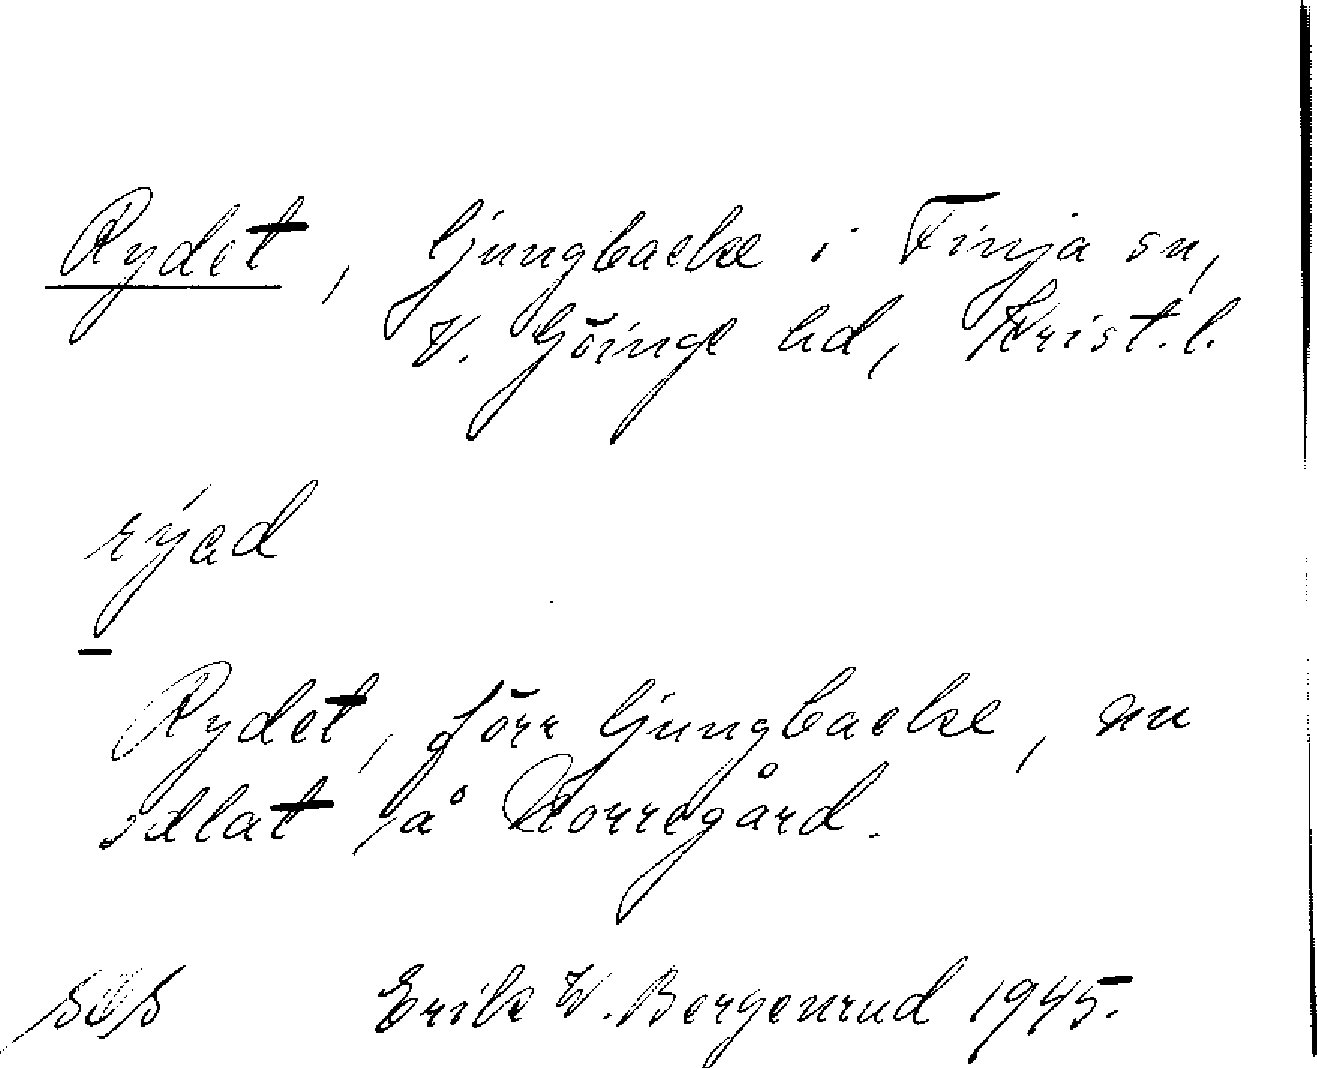 Rydet, ljungbacke i Finja sn,
V. Göinge hd, Krist. l.
rýad
Rydet, förr ljungbacke, nu
odlat på Norregård.
Erik W. Bergenrud 1945.